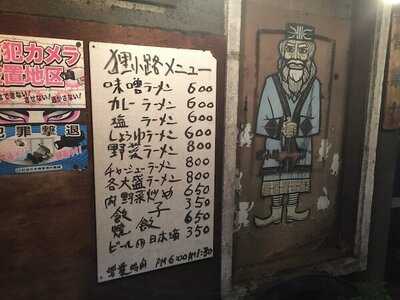 犯カメラ
置地区
犯罪撃退
狸小路メニュー
味噌ラーメン 600
カレーラーメン 600
塩ラーメン 600
しょうゆラーメン 600
野菜ラーメン 800
チャーシューラーメン 800
各大盛ラーメン 800
肉野菜炒め 650
餃子 350
焼飯 650
ビール 日本酒 350
営業時間 PM 6:00 AM 1:30